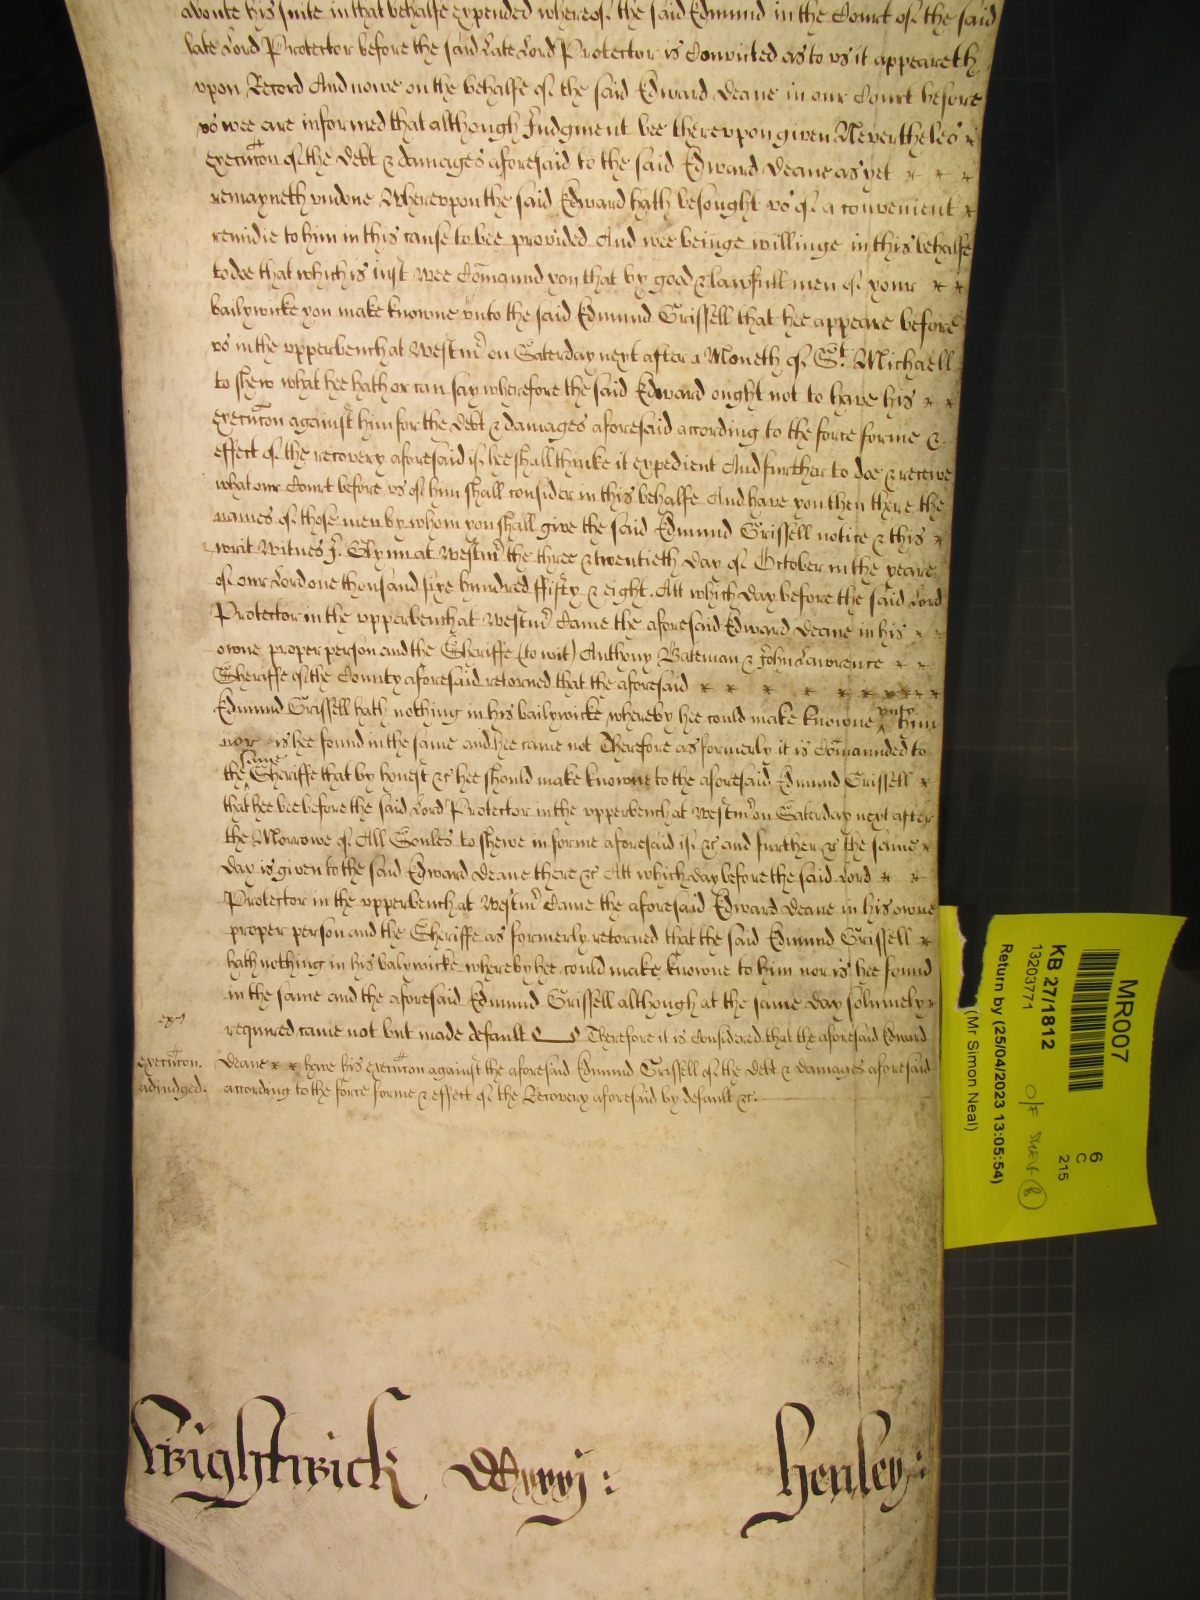 aboute his suite in that behalfe expended whereof the said Edmund in the Court of the said
late Lord Protector before the said late Lord Protector is Convicted as to us it appeareth
upon Record And nowe on the behalfe of the said Edward Deane in our Court before
us wee are informed that although Judgment bee thereupon given Neverthelesse
execucon of the debt & damages aforesaid to the said Edward Deane as yet
remayneth undone Whereupon the said Edward hath besought us of a convenient
remidie to him in this cause to bee provided And wee beinge willinge in this behalfe
to doe that which is just wee Comaund you that by good & lawfull men of your
bailywicke you make knowne unto the said Edmund Grissell that hee appeare before
us in the upperbench at Westmr on Saterday next after a Moneth of St. Michaell
to shew what hee hath or can say wherefore the said Edward ought not to have his
execucon against him for the debt & damages aforesaid according to the force forme &
effect of the recovery aforesaid if hee shall thinke it expedient And further to doe & receive
what our Court before us of him shall consider in this behalfe And have you then there the
names of those men by whom you shall give the said Edmund Grissell notice & this
writ Witnes J. Glynn at Westmr the three & twentieth day of October in the yeare
of our Lord one thousand sixe hundred ffifty & eight. Att which day before the said Lord
Protector in the upperbench at Westmr Came the aforesaid Edward Deane in his
owne proper person and the Sheriffe (to wit) Anthony Bateman & John Lawrence
Sheriffe of the County aforesaid retorned that the aforesaid
Edmund Grissell hath nothing in his bailywicke whereby hee could make knowne unto him
nor is hee found in the same and hee came not Therefore as formerly it is Comaunded to
the same Sheriffe that by honest &c hee should make knowne to the aforesaid Edmund Grissell
that hee bee before the said Lord Protector in the upperbench at Westmr on Saterday next after
the Morrowe of All Soules to shewe in forme aforesaid if &c and further &c the same
day is given to the said Edward Deane there &c Att which day before the said Lord
Protector in the upperbench at Westmr Came the aforesaid Edward Deane in his owne
proper person and the Sheriffe as formerly retorned that the said Edmund Grissell
hath nothing in his balywicke whereby hee could make knowne to him nor is hee found
in the same and the aforesaid Edmund Grissell although at the same day solemnely
required came not but made default Therefore it is Considered that the aforesaid Edward
execucon. Deane have his execucon against the aforesaid Edmund Grissell of the debt & damages aforesaid
adiudged. according to the force forme & effect of the Recovery aforesaid by default &c.
Wightwick
Henley:
MR007
6
C
215
KB 27/1812
13203771
Return by (25/04/2023 13:05:54)
(Mr Simon Neal)